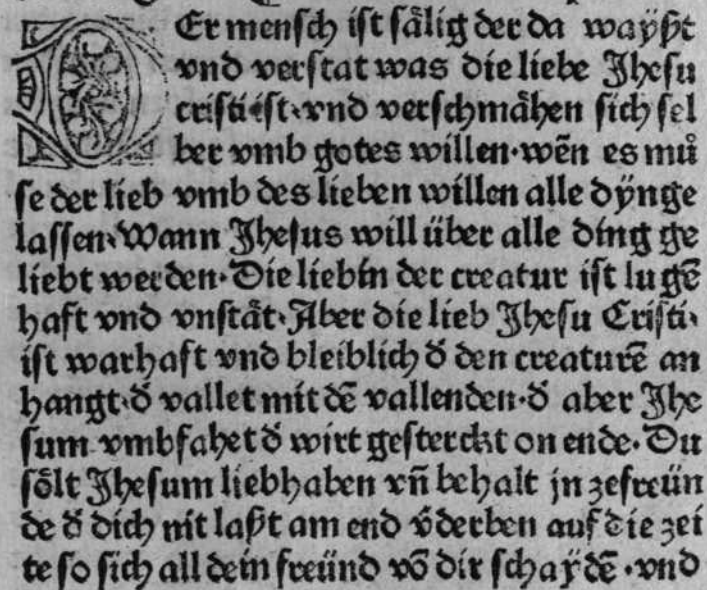 DEr mensch ist sålig der da waÿßt
vnd verstat was die liebe Jhesu
cristi ist·vnd verschmåhen sich sel
ber vmb gotes willen·wēn es mů
se der lieb vmb des lieben willen alle dÿnge
lassen·Wann Jhesus will über alle ding ge
liebt werden·Die liebin der creatur ist lugē
haft vnd vnståt·Aber die lieb Jhesu Cristi·
ist warhaft vnd bleiblich đ den creaturē an
hangt·đ vallet mit dē vallenden·đ aber Jhe
sum vmbfahet đ wirt gesterckt on ende·Du
sőlt Jhesum liebhaben vñ behalt jn zefreün
de đ dich nit laßt am end v̄derben auf die zei
te so sich all dein freünd vō dir schaÿdē·vnd